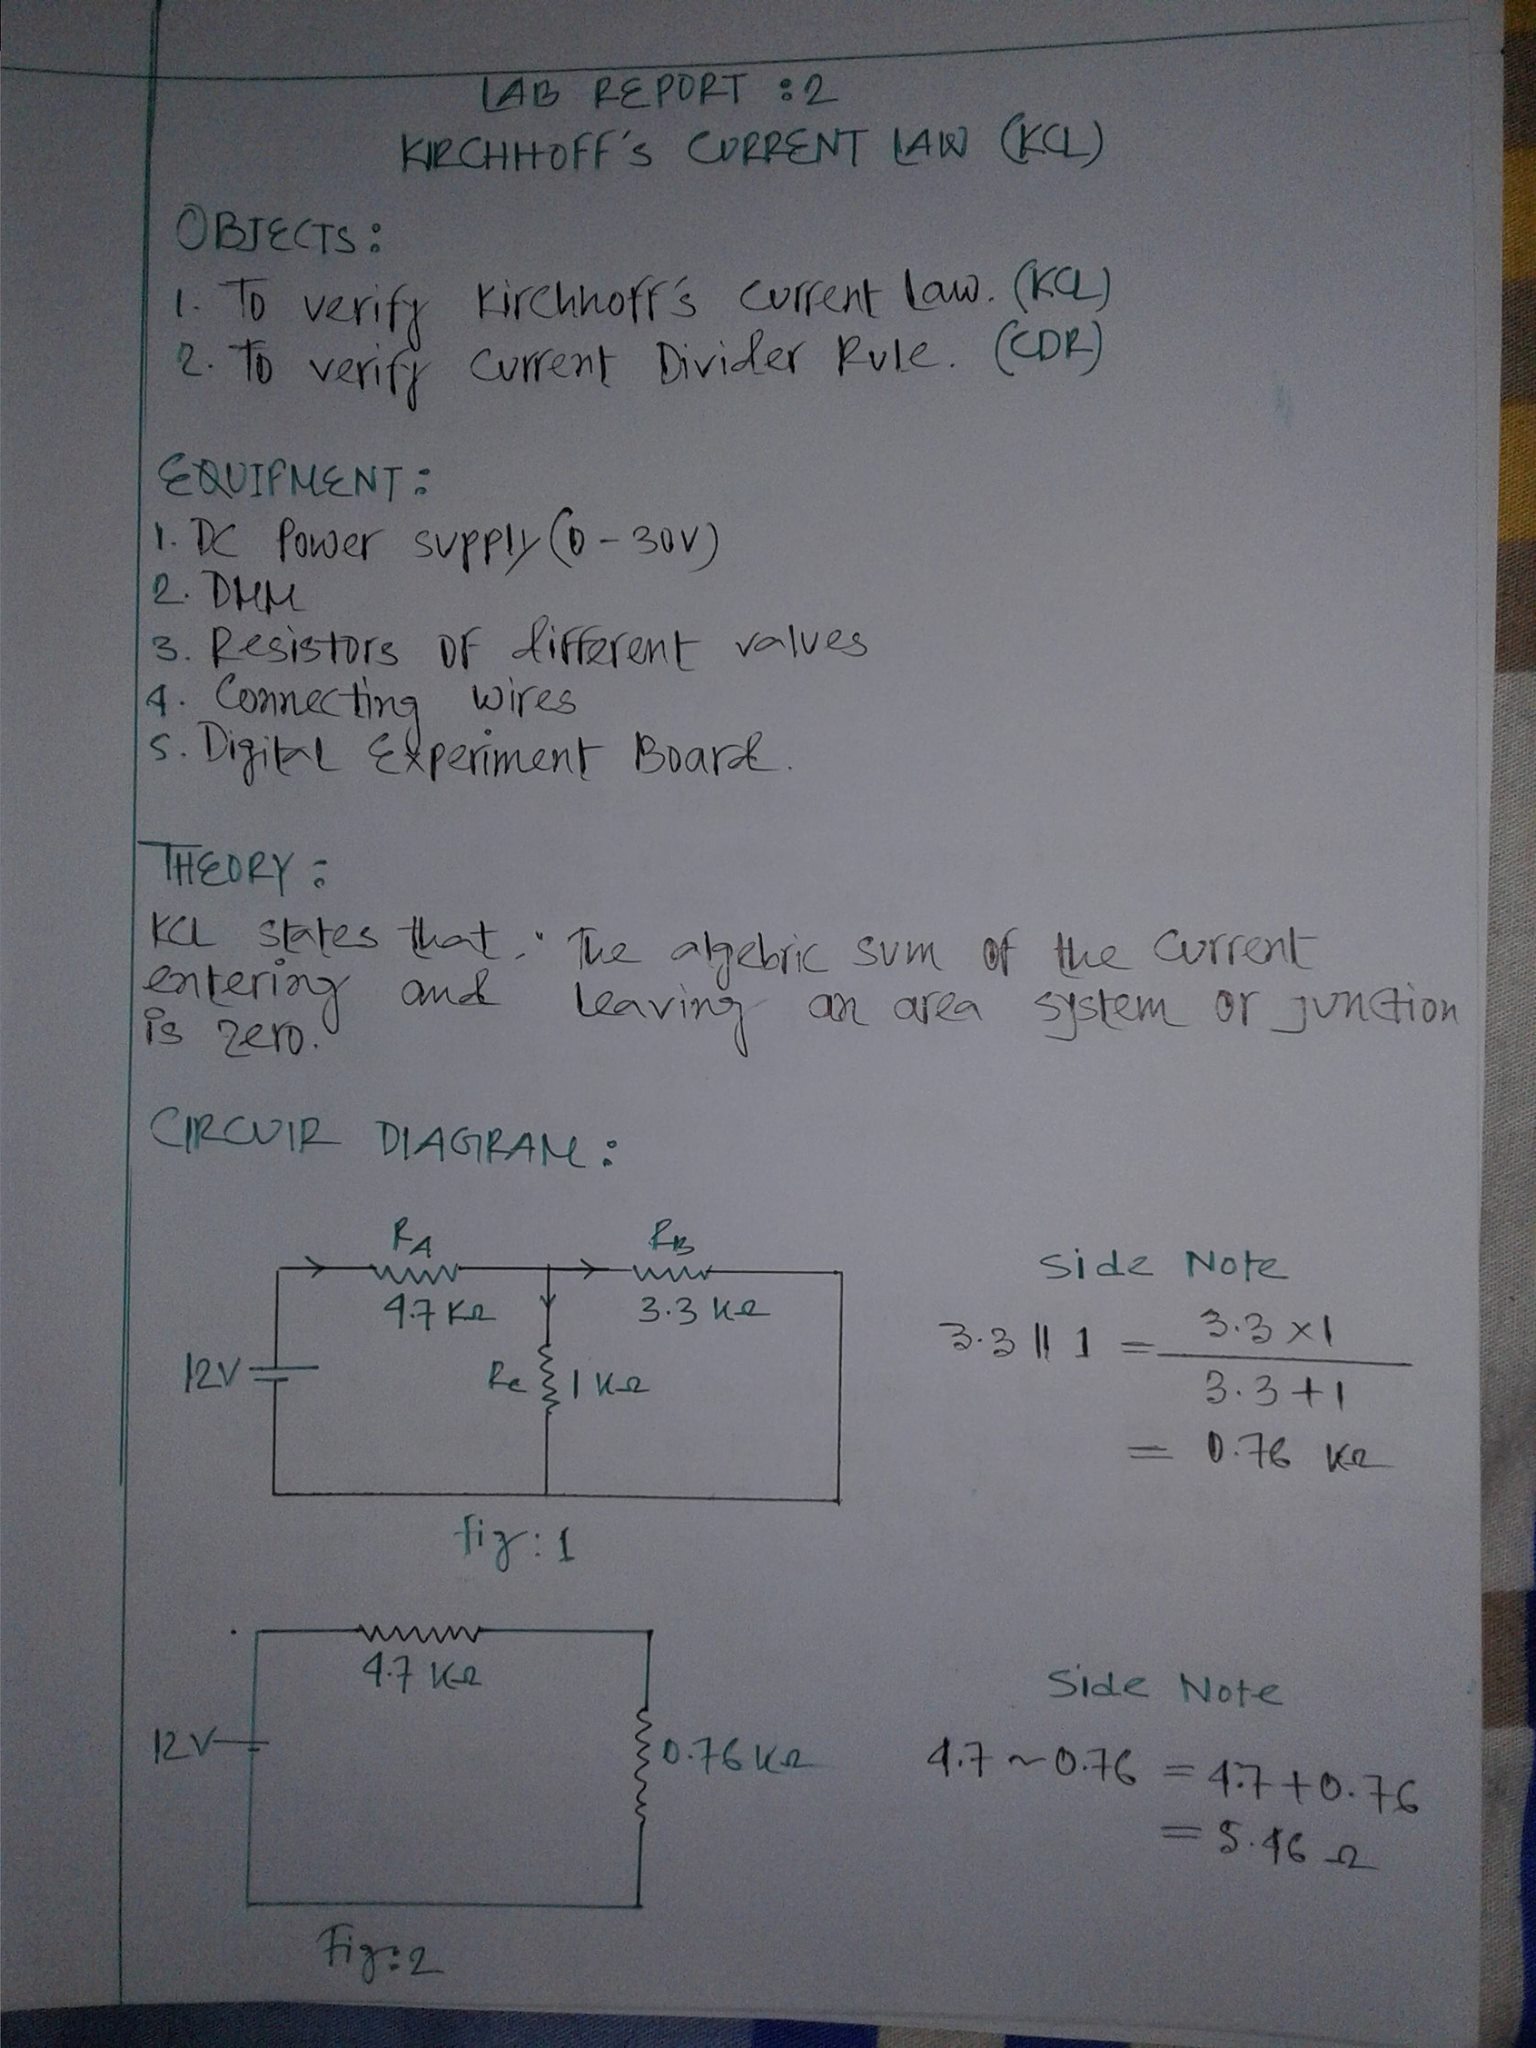 LAB REPORT : 2
KIRCHHOFF's CURRENT LAW (KCL)
OBJECTS :
1. To verify Kirchhoff's current Law. (KCL)
2. To verify Current Divider Rule. (CDR)
EQUIPMENT :
1. DC Power supply (0 - 30V)
2. DMM
3. Resistors of different values
4. Connecting wires
5. Digital Experiment Board.
THEORY :
KCL states that, " The algebric sum of the current
entering and leaving an area system or junction
is zero.
CIRCUIR DIAGRAM :
RA
RB
4.7 KΩ
3.3 KΩ
12V
Rc
1 KΩ
fig : 1
Side Note
3.3 || 1 = 3.3 x 1
3.3 + 1
= 0.76 KΩ
4.7 KΩ
12V
0.76 KΩ
Fig : 2
Side Note
4.7 ~ 0.76 = 4.7 + 0.76
= 5.46 Ω